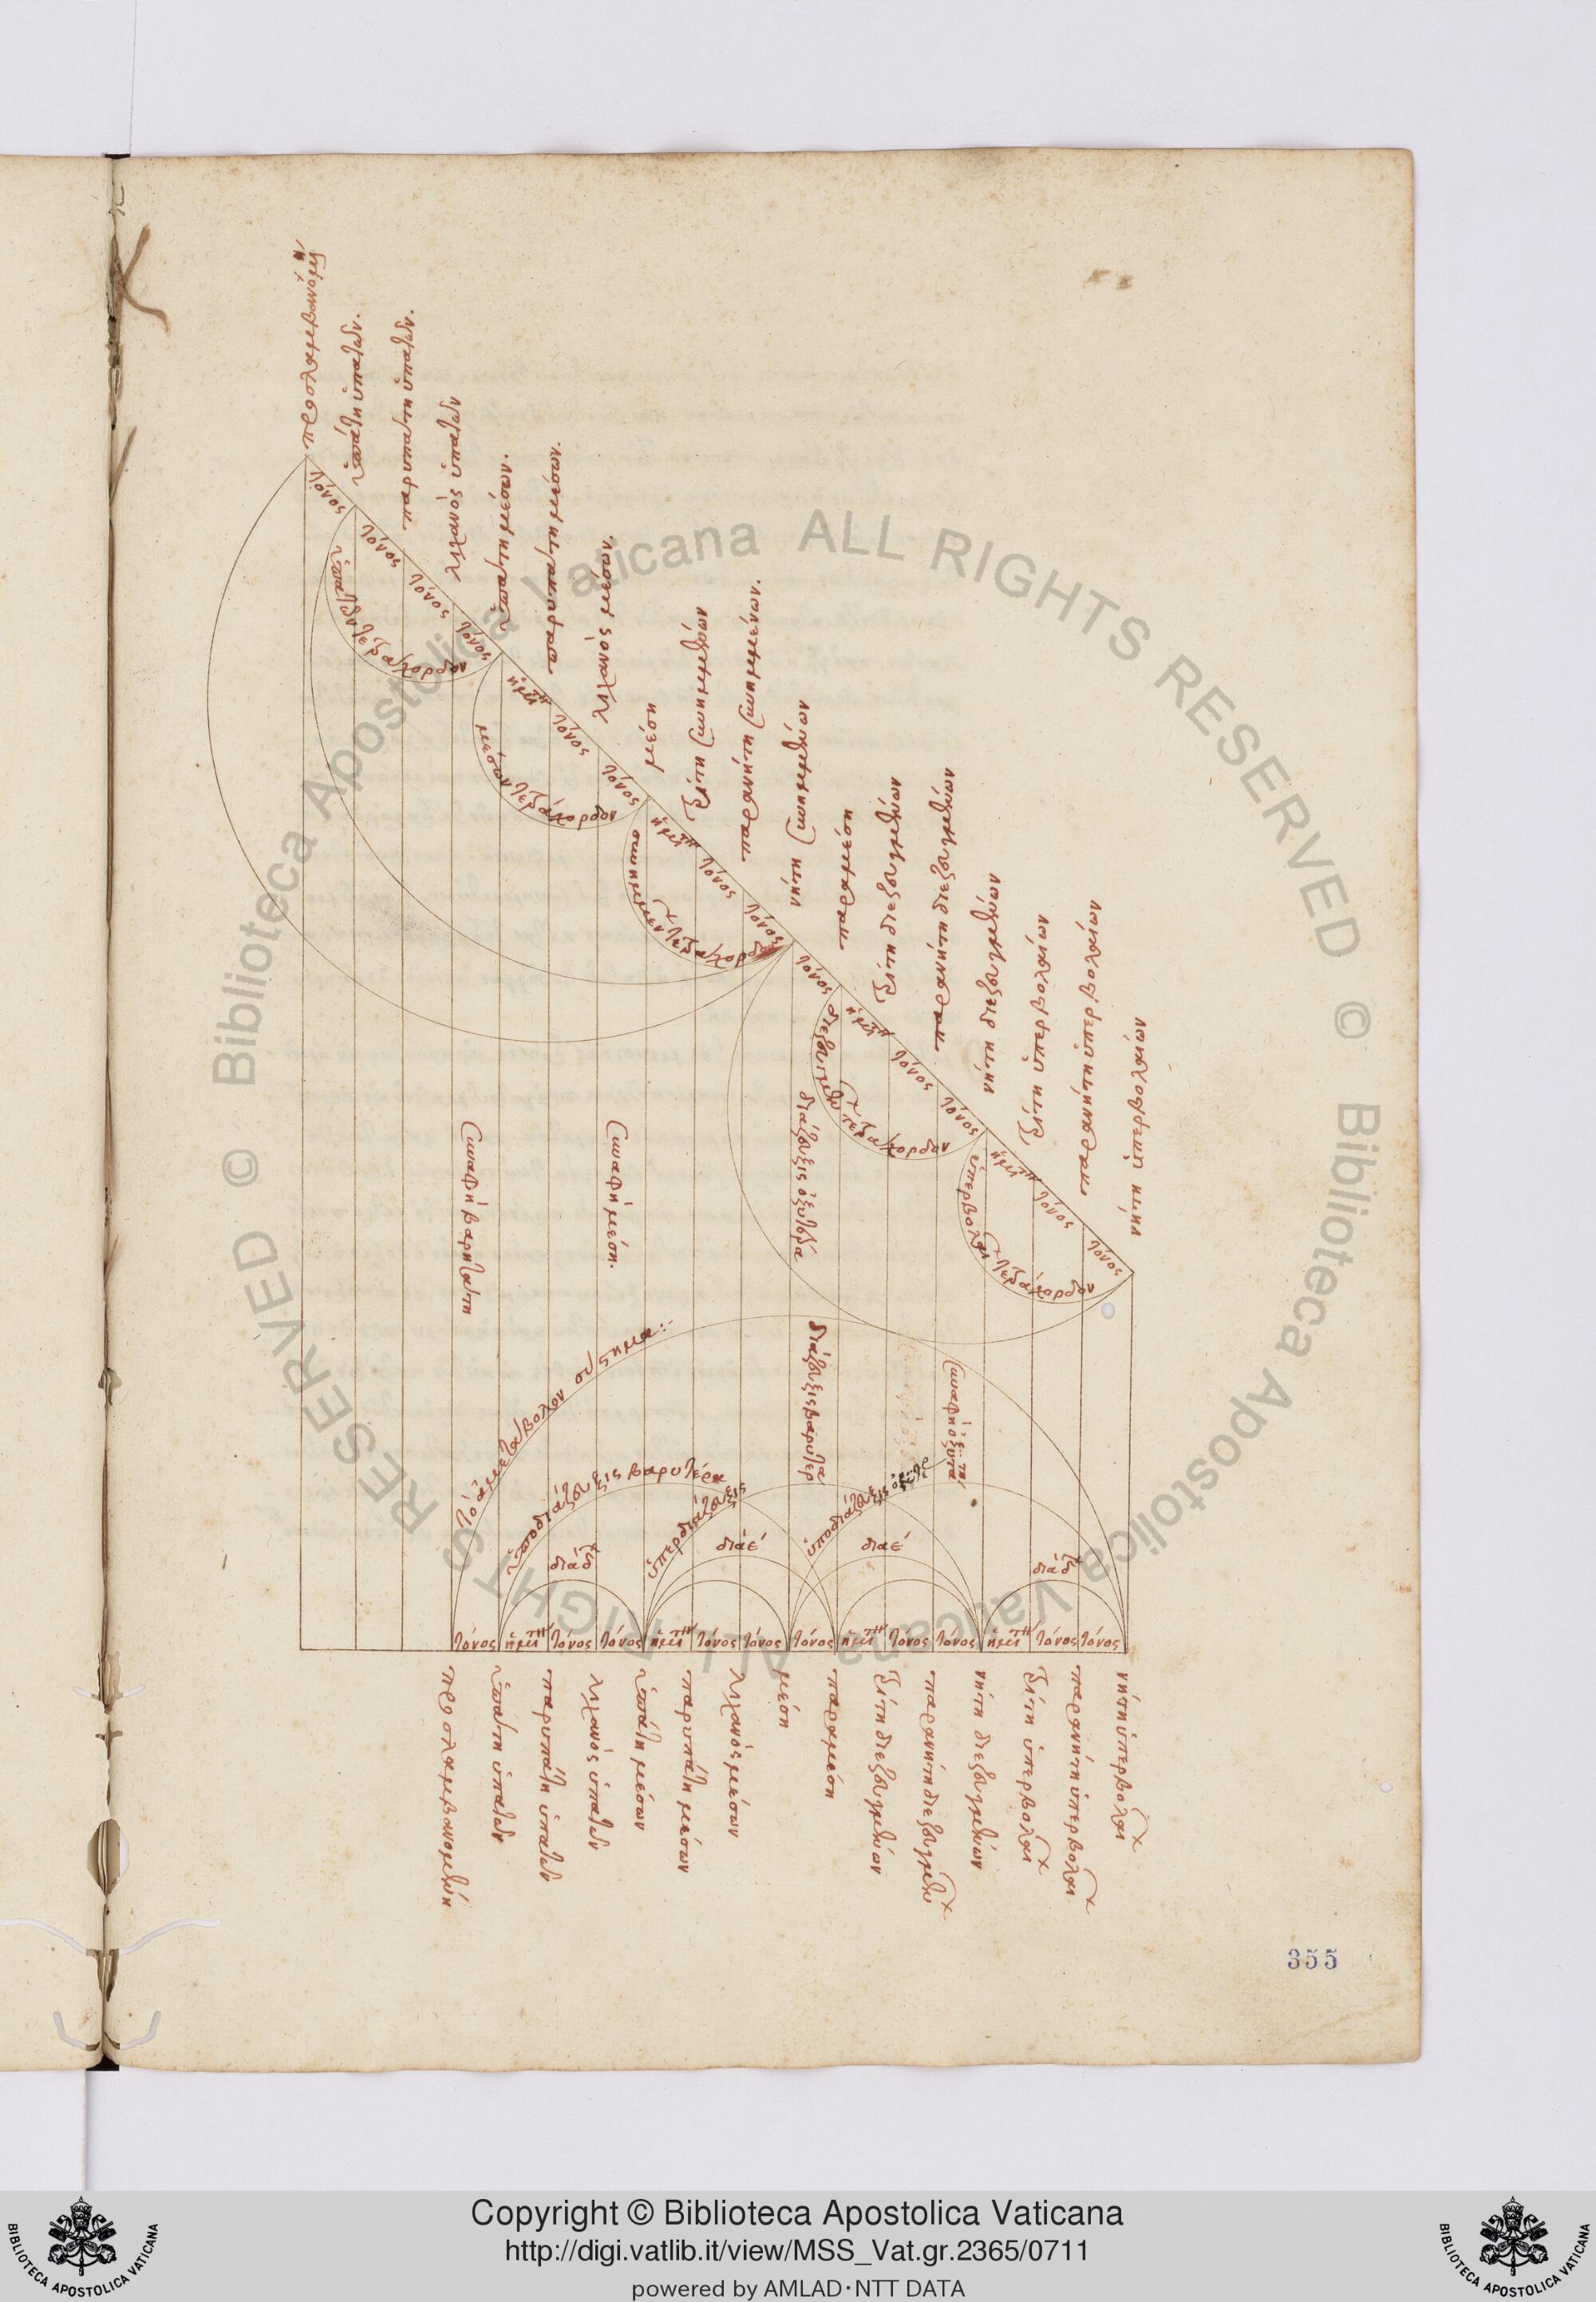 προσλαμβανόμεν
ὑπάτη ὑπατῶν.
παρυπατη ὑπατων.
λιχανὸς ὑπατῶν
ὑπατη μέσων.
παρυπατη μέσων.
λιχανὸς μέσων.
μέση
τρίτη συνημμένων
παρανήτη συνημμένων.
νήτη συνημμένων
παραμέση
τρίτη διεζευγμένων
παρανήτη διεζευγμένων
νήτη διεζευγμένων
τρίτη ὑπερβολαίων
παρανήτη ὑπερβολαίων
νήτη ὑπερβολαίων
τόνος
τόνος
τόνος
τόνος
ἡμιτ
τόνος
τόνος
ἡμιτ
τόνος
τόνος
τόνος
ἡμιτ
τόνος
τόνος
ἡμιτ
τόνος
τόνος
ὑπατῶν τετράχορδον
μέσων τετράχορδον
συνημμένων τετράχορδον
διεζευγμένων τετράχορδον
ὑπερβολαίων τετράχορδον
συναφὴ βαρυτάτη
συναφὴ μέση.
διάζευξις ὀξυτέρα
διάζευξις βαρυτερ
συναφὴ ὀξυτα
τὸ ἀμετάβολον σύστημα:-
ὑποδιάζευξις βαρυτέρα
ὑπερδιάζευξις
ὑποδιάζευξις
διὰ δ
διὰ ε
διὰ ε
διὰ δ
τόνος ἡμιτ τόνος τόνος ἡμιτ τόνος τόνος τόνος ἡμιτ τόνος τόνος ἡμιτ τόνος τόνος
προσλαμβανομένη
ὑπατη ὑπατῶν
παρυπάτη ὑπατῶν
λιχανὸς ὑπατῶν
ὑπάτη μέσων
παρυπάτη μέσων
λιχανὸς μέσων
μέση
παραμέση
τρίτη διεζευγμένων
παρανήτη διεζευγμένων
νήτη διεζευγμένων
τρίτη ὑπερβολαίων
παρανήτη ὑπερβολαίων
νήτη ὑπερβολαίων
355
© Biblioteca Apostolica Vaticana ALL RIGHTS RESERVED
© Biblioteca Apostolica Vaticana ALL RIGHTS RESERVED
Copyright © Biblioteca Apostolica Vaticana
http://digi.vatlib.it/view/MSS_Vat.gr.2365/0711
powered by AMLAD·NTT DATA
BIBLIOTECA APOSTOLICA VATICANA
BIBLIOTECA APOSTOLICA VATICANA